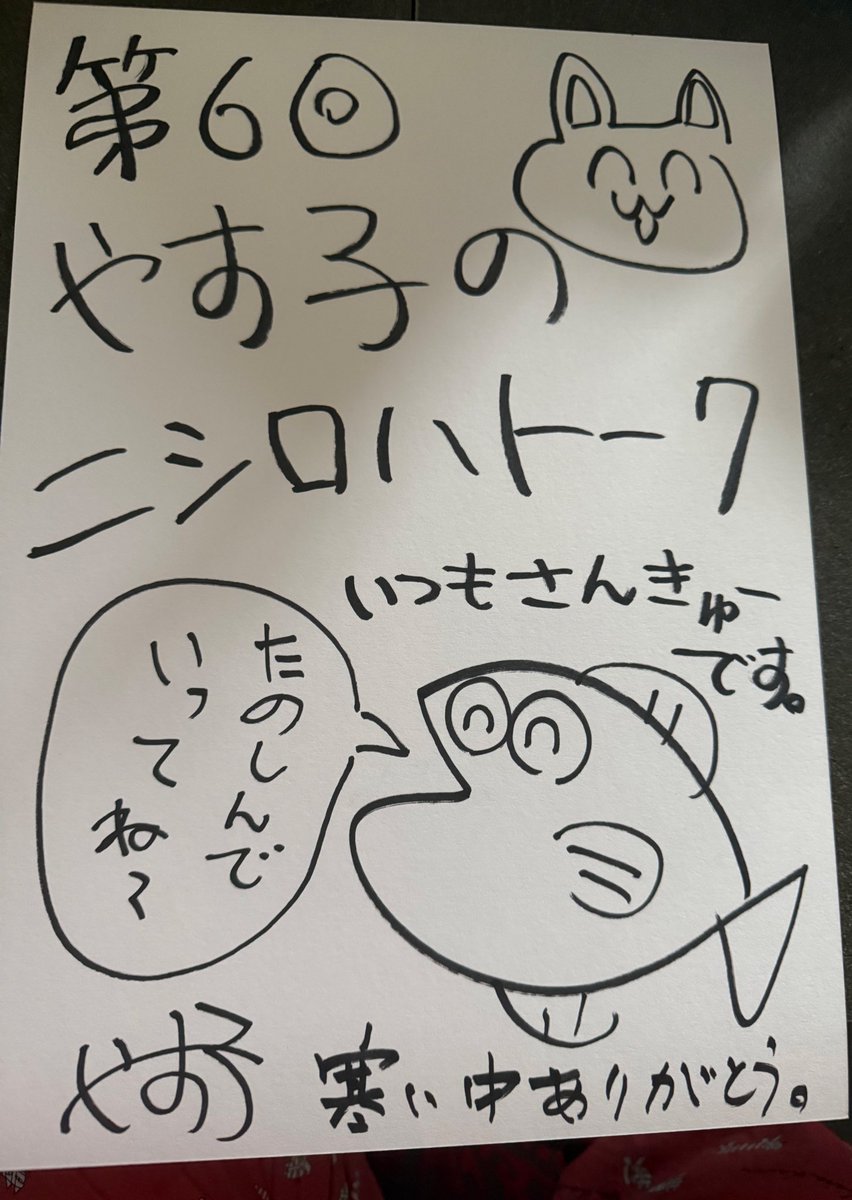 第6回
やす子の
ニシロハトーク
いつもさんきゅー
です。
たのしんで
いって
ね〜
やす子
寒い中ありがとう。